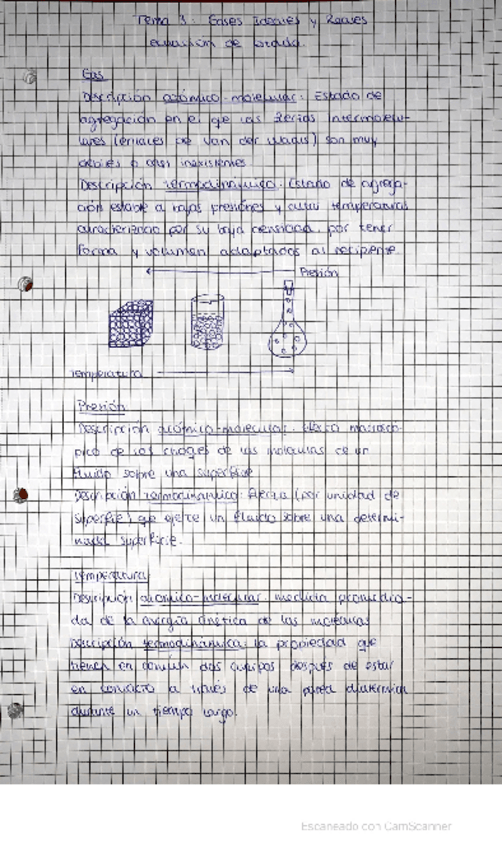 Tema 3. Gases Ideales y Reales
ecuación de estado.
Gas
Descripción atómico-molecular: Estado de
agregación en el que las fuerzas intermolecu-
lares (enlaces de Van der Waals) son muy
débiles o casi inexistentes
Descripción termodinámica: Estado de agrega-
ción estable a bajas presiones y altas temperaturas
caracterizado por su baja densidad, por tener
forma y volumen adaptados al recipiente.
Presión
Temperatura
Presión
Descripción atómico-molecular: efecto macroscó-
pico de los choques de las moléculas de un
fluido sobre una superficie
Descripción termodinámica: fuerza (por unidad de
superficie) que ejerce un fluido sobre una determi-
nada superficie.
Temperatura
Descripción atómico-molecular: medida promedia-
da de la energía cinética de las moléculas
Descripción termodinámica: la propiedad que
tienen en común dos cuerpos después de estar
en contacto a través de una pared diatérmica
durante un tiempo largo.
Escaneado con CamScanner